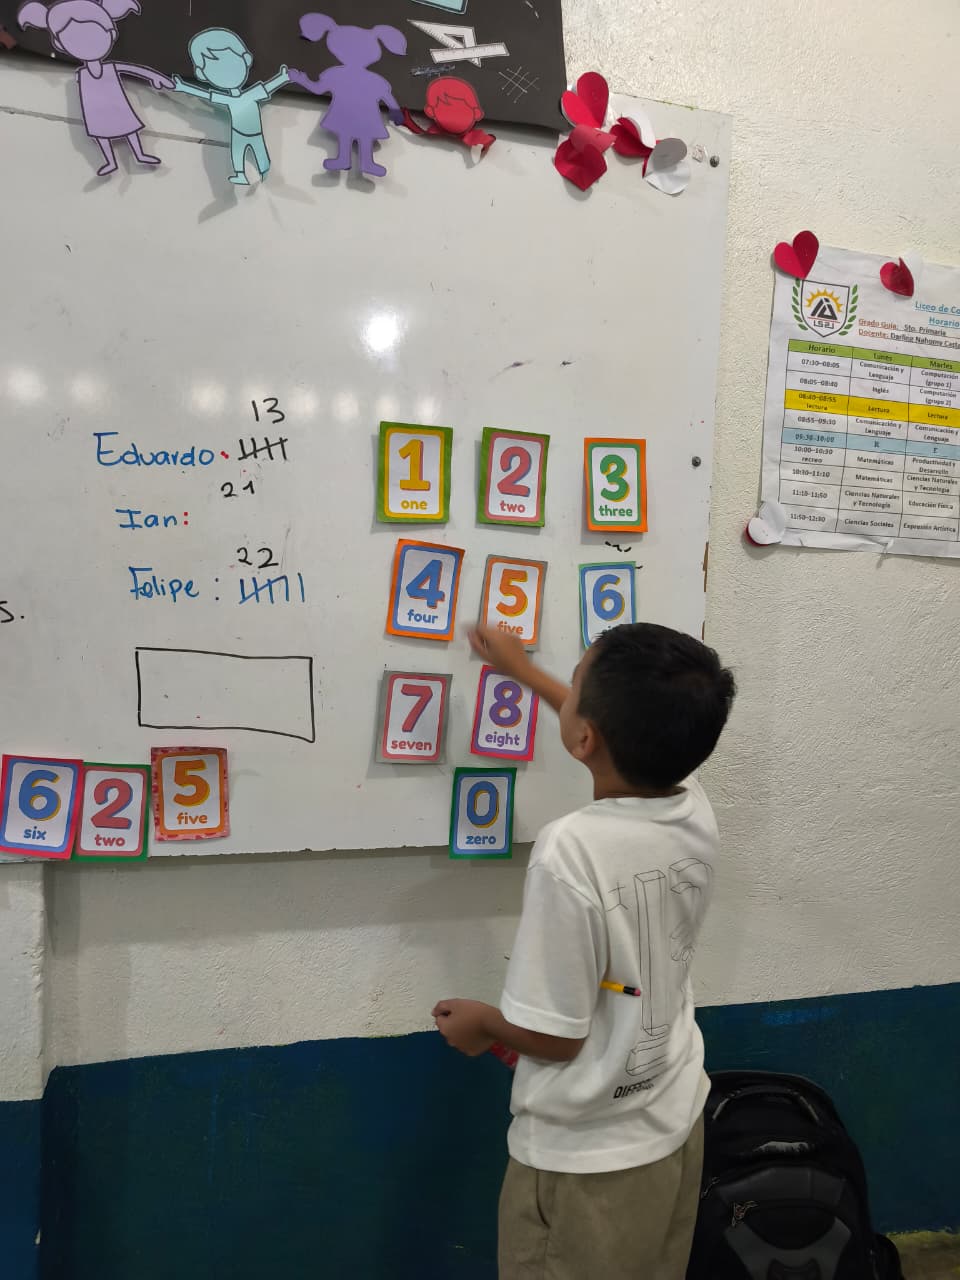 13
Eduardo.
21
Ian:
22
Felipe :
s.
1
one
2
two
3
three
4
four
5
five
6
7
seven
8
eight
0
zero
6
six
2
two
5
five
Liceo de Co
Horario
Grado Guía: 5to. Primaria
Docente: Darling Nahomy Cast
Horario Lunes Martes
07:30-08:05 Comunicación y Lenguaje Computación (grupo 1)
08:05-08:40 Inglés Computación (grupo 2)
08:40-08:55 lectura Lectura Lectura
08:55-09:30 Comunicación y Lenguaje Comunicación y Lenguaje
09:30-10:00 R E
10:00-10:30 recreo Matemáticas Productividad y Desarrollo
10:30-11:10 Matemáticas Ciencias Naturales y Tecnología
11:10-11:50 Ciencias Naturales y Tecnología Educación Física
11:50-12:30 Ciencias Sociales Expresión Artística